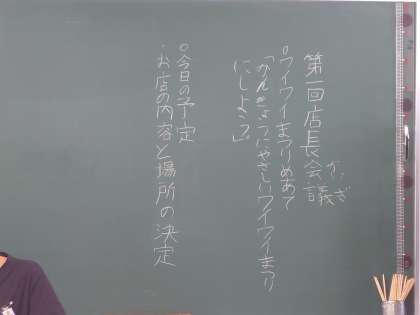 第一回店長会議
かいぎ
○ワイワイまつりめあて
「かんきょうにやさしいワイワイまつり
にしよう。」
○今日の予定
・お店の内容と場所の決定